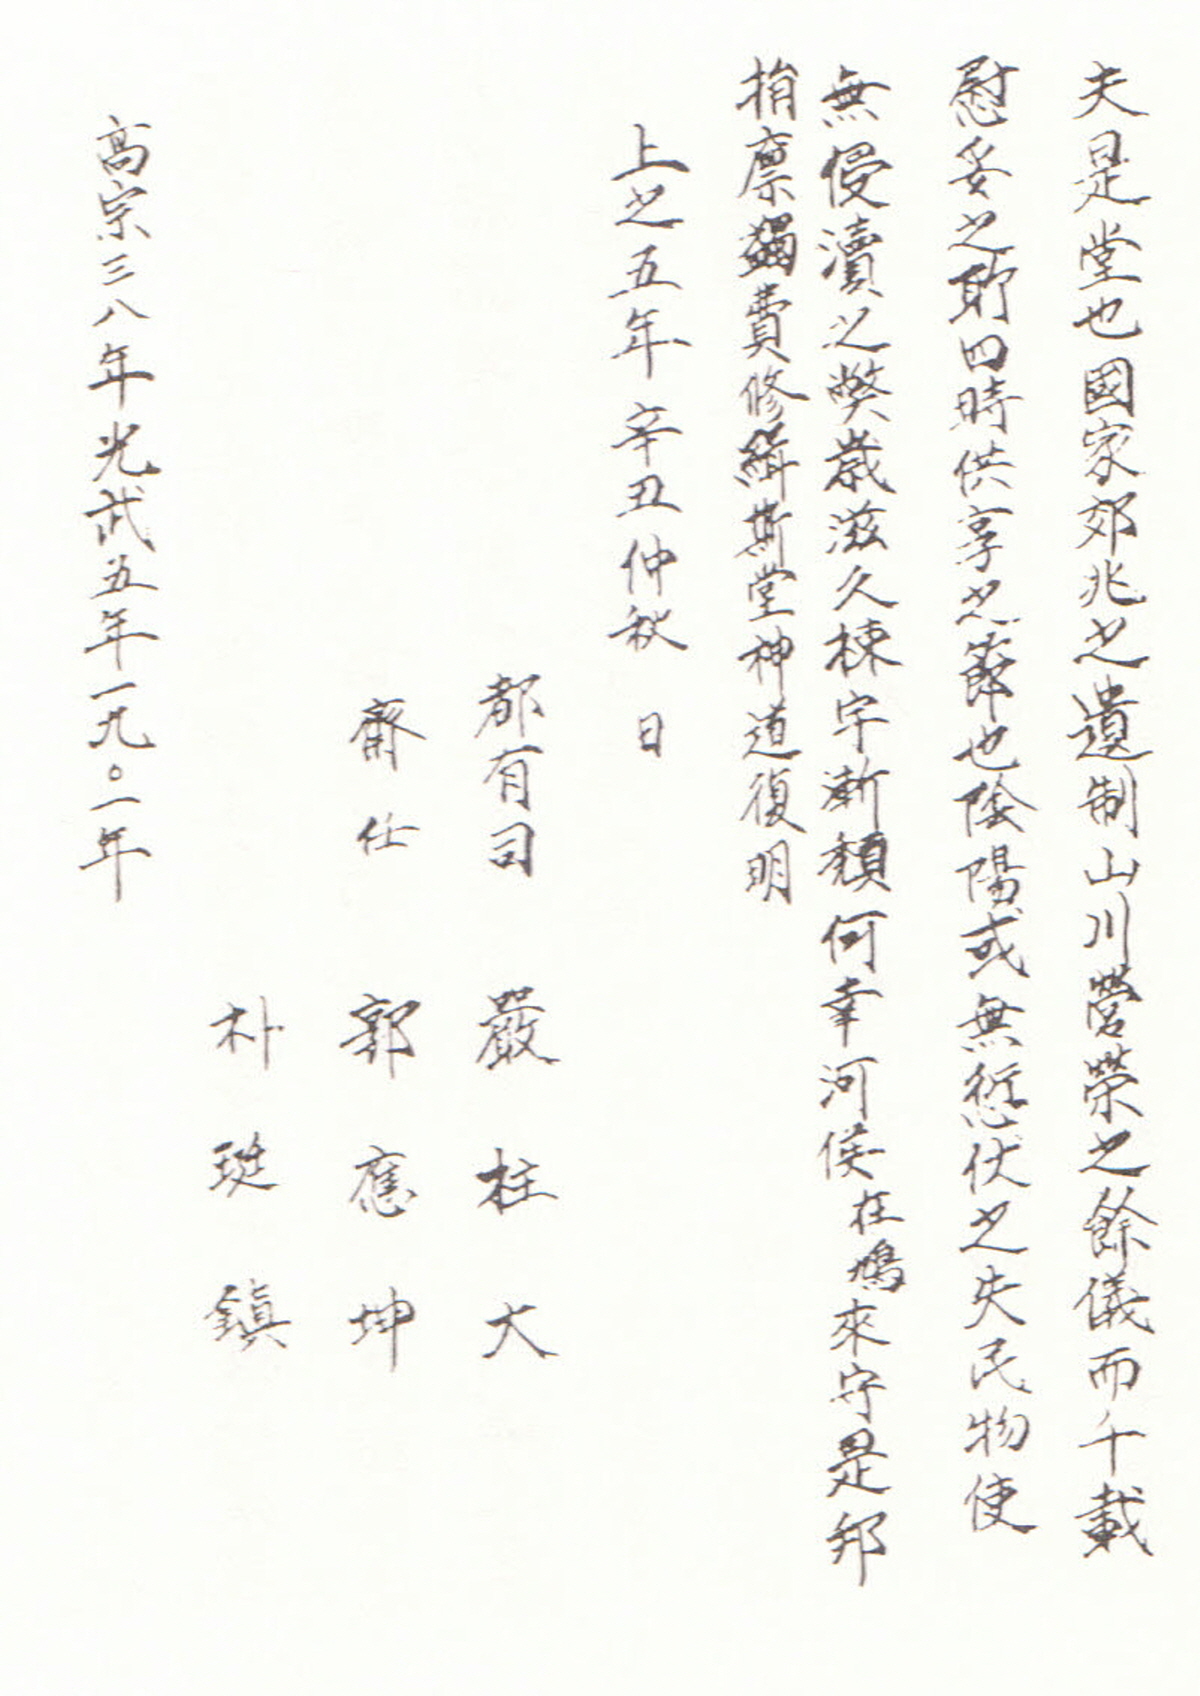 夫是堂也國家郊兆之遺制山川營禜之餘儀而千載
慰妥之所四時供享之節也陰陽或無愆伏之失民物使
無侵瀆之弊歲滋久棟宇漸頹何幸河侯在鳩來守是邦
捐廩蠲費修緝斯堂神道復明
上之五年 辛丑仲秋 日
都有司 嚴柱大
齋任 郭應坤
朴珽鎭
高宗三八年光武五年一九○一年